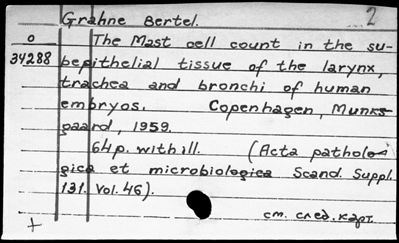 Grahne Bertel. 2
o The Mast cell count in the su-
34288 bepithelial tissue of the larynx,
trachea and bronchi of human
embryos. Copenhagen, Munks-
gaard, 1959.
64p. with ill. (Acta patholo-
gica et microbiologica Scand. Suppl.
131. Vol. 46).
см. след. карт.
+